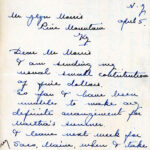 N.Y.
Mr Glyn Morris April 5.
Pine Mountain
Ky
Dear Mr Morris
I am sending my
usual small contribution
of five dollars.
So far I have been
unable to make any
definite arrangement for
Martha's summer.
I leave next week for
Saco, Maine when I take